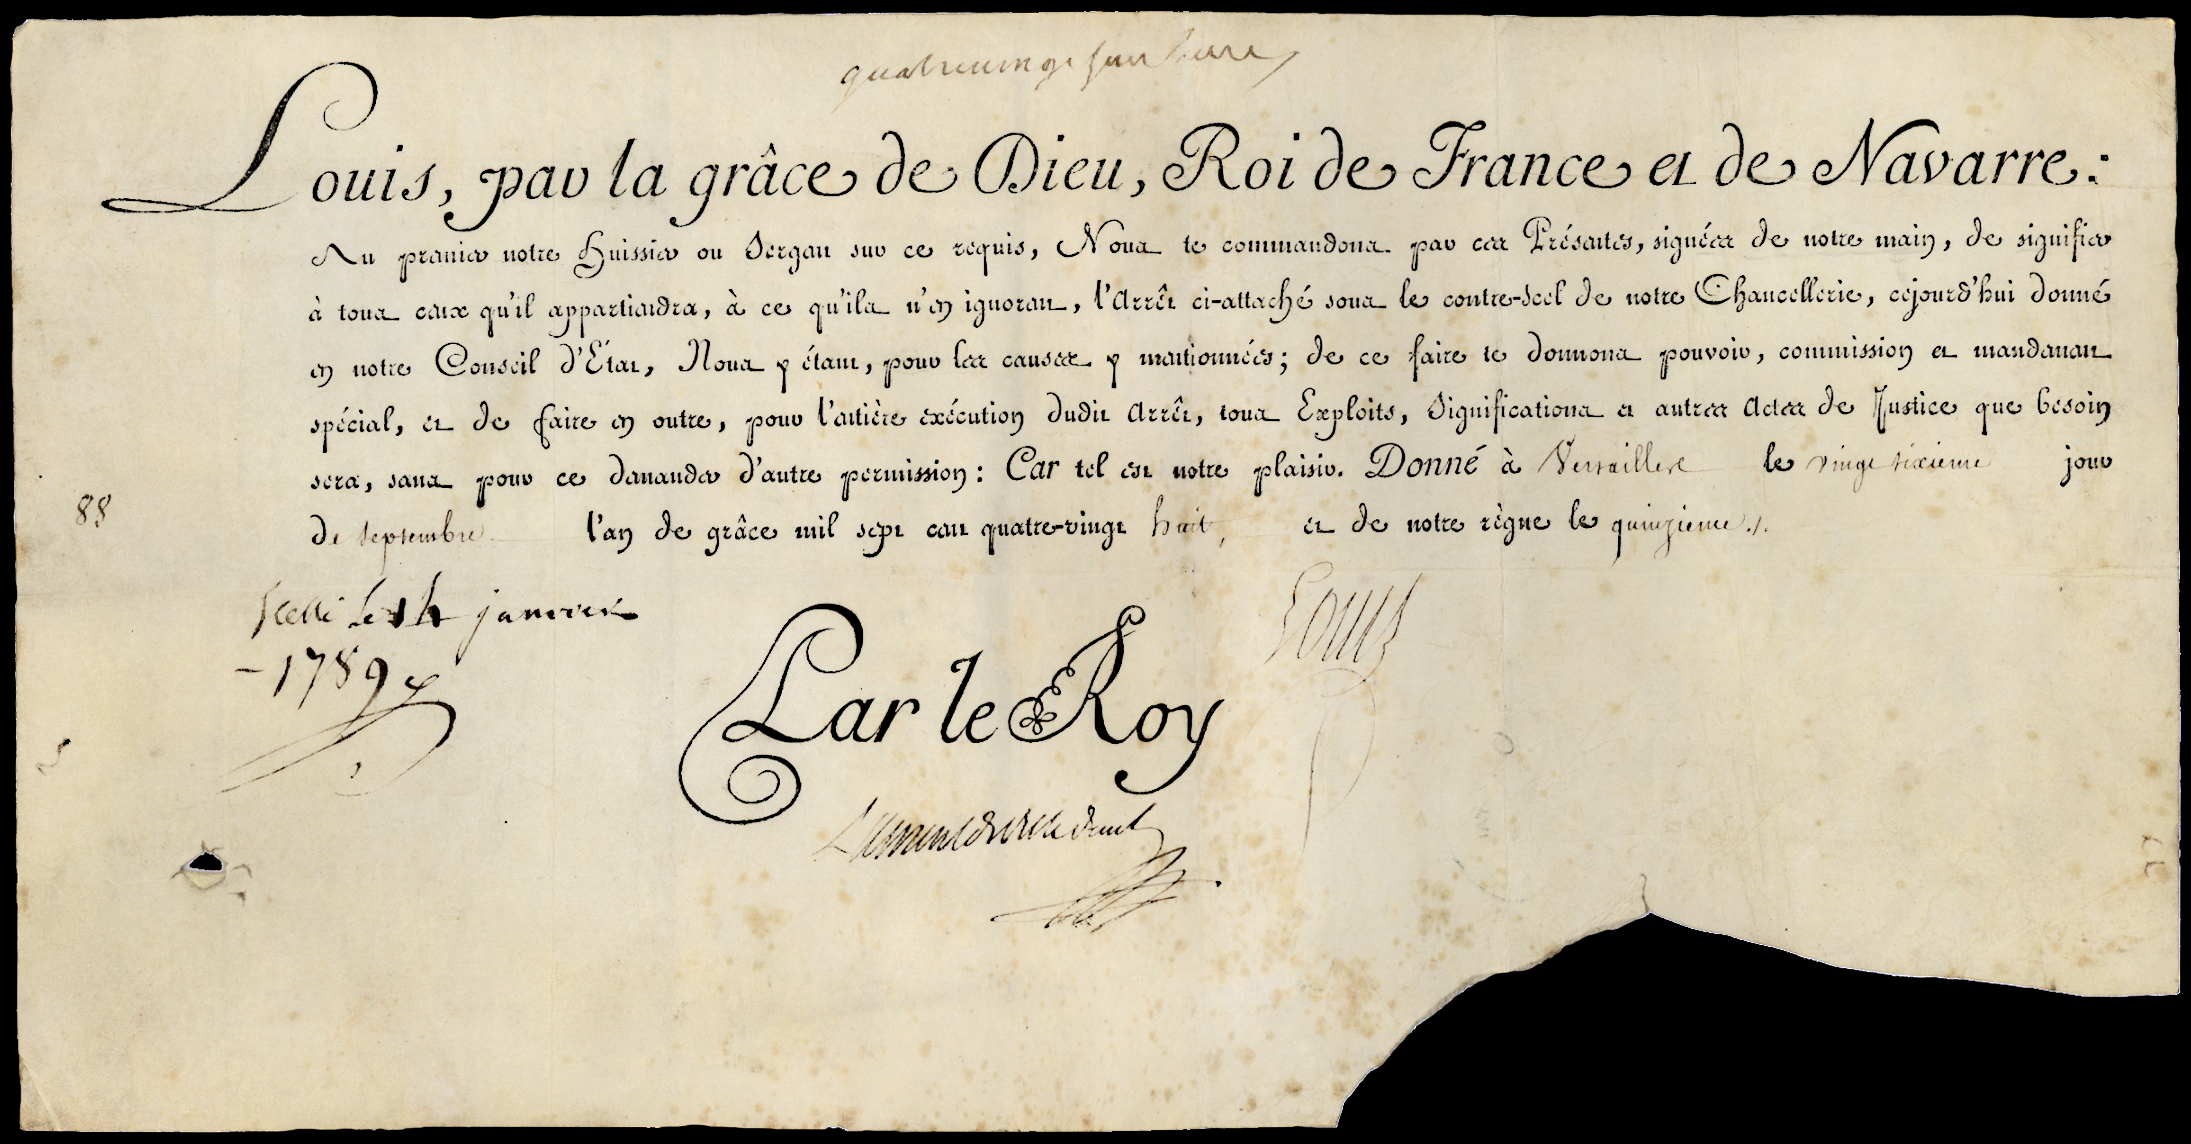 Louis, par la grâce de Dieu, Roi de France et de Navarre :
Au premier notre Huissier ou Sergent sur ce requis, Nous te commandons par ces Présentes, signées de notre main, de signifier
à tous ceux qu'il appartiendra, à ce qu'ils n'en ignorent, l'Arrêt ci-attaché sous le contre-scel de notre Chancellerie, cejourd'hui donné
en notre Conseil d'État, Nous y étant, pour les causes y mentionnées ; de ce faire te donnons pouvoir, commission et mandement
spécial, et de faire en outre, pour l'entière exécution dudit Arrêt, tous Exploits, Significations et autres Actes de Justice que besoin
sera, sans pour ce demander d'autre permission : Car tel est notre plaisir. Donné à Versailles le vingt sixieme jour
88
de septembre l'an de grâce mil sept cent quatre-vingt huit, et de notre règne le quinzieme ./.
Scellé le 14 janvier
1789
Louis
Par le Roy